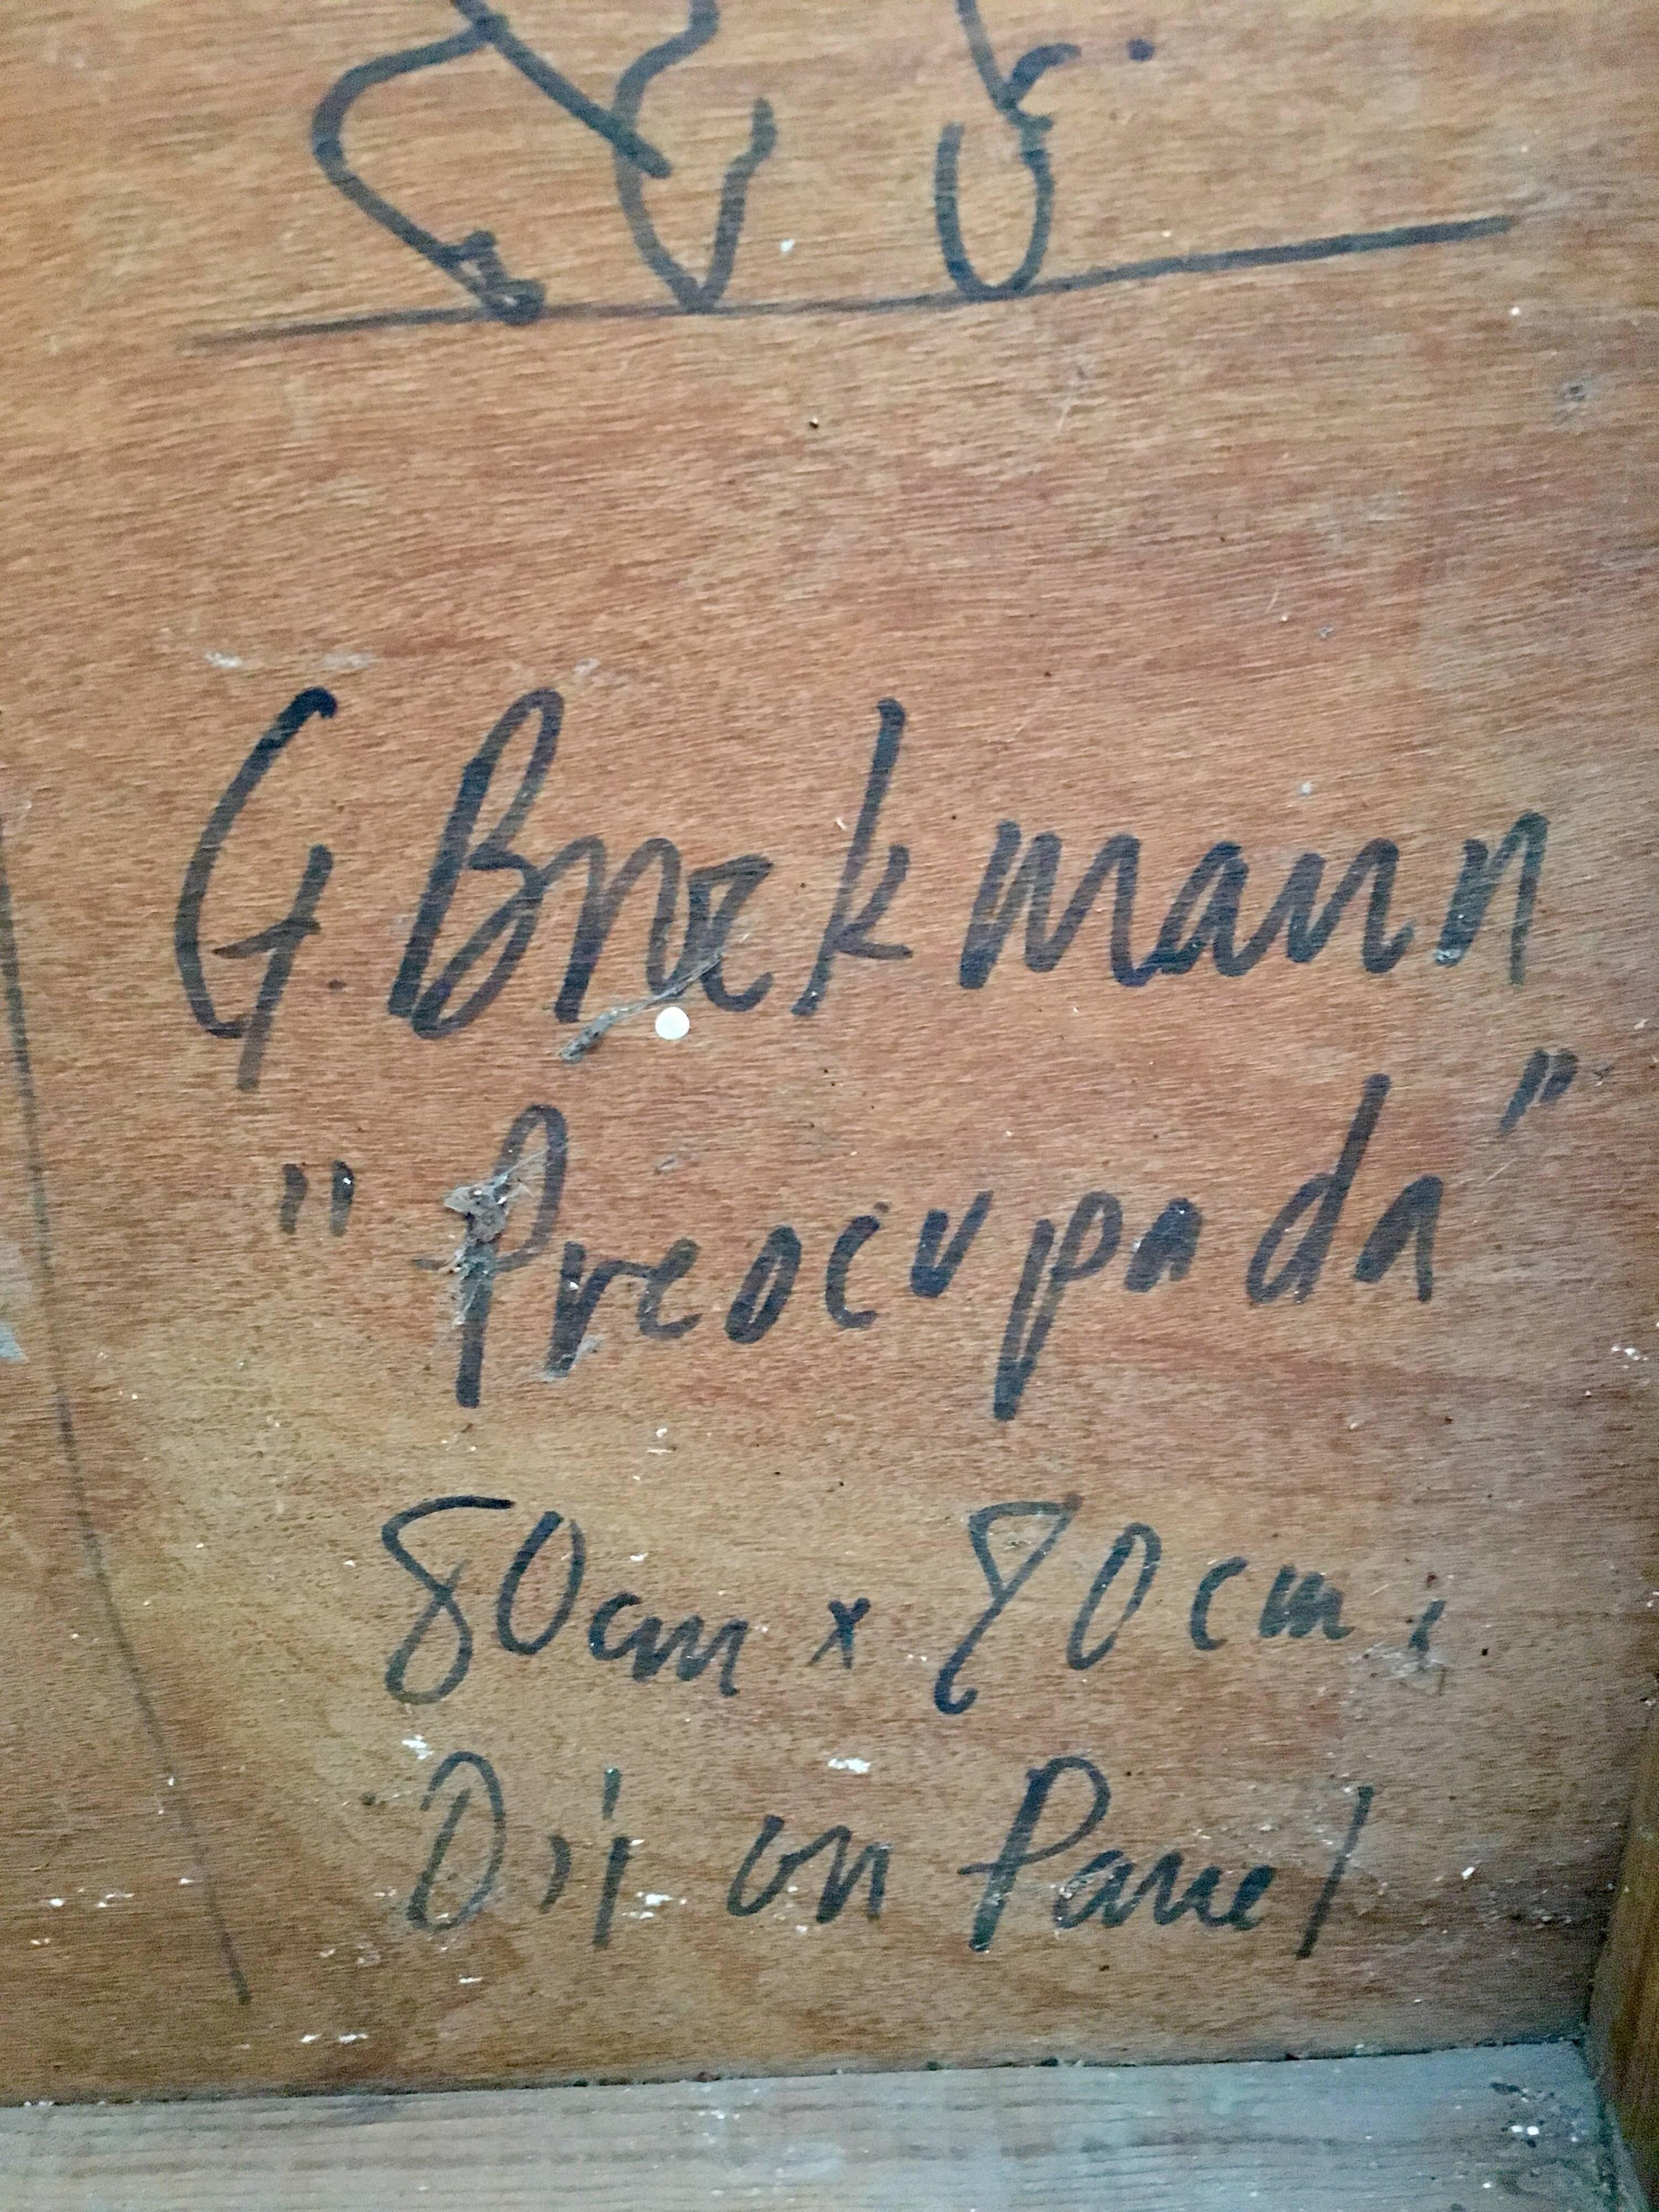 G. Brockmann
"Preocupada"
80cm x 80cm;
Oil on Panel